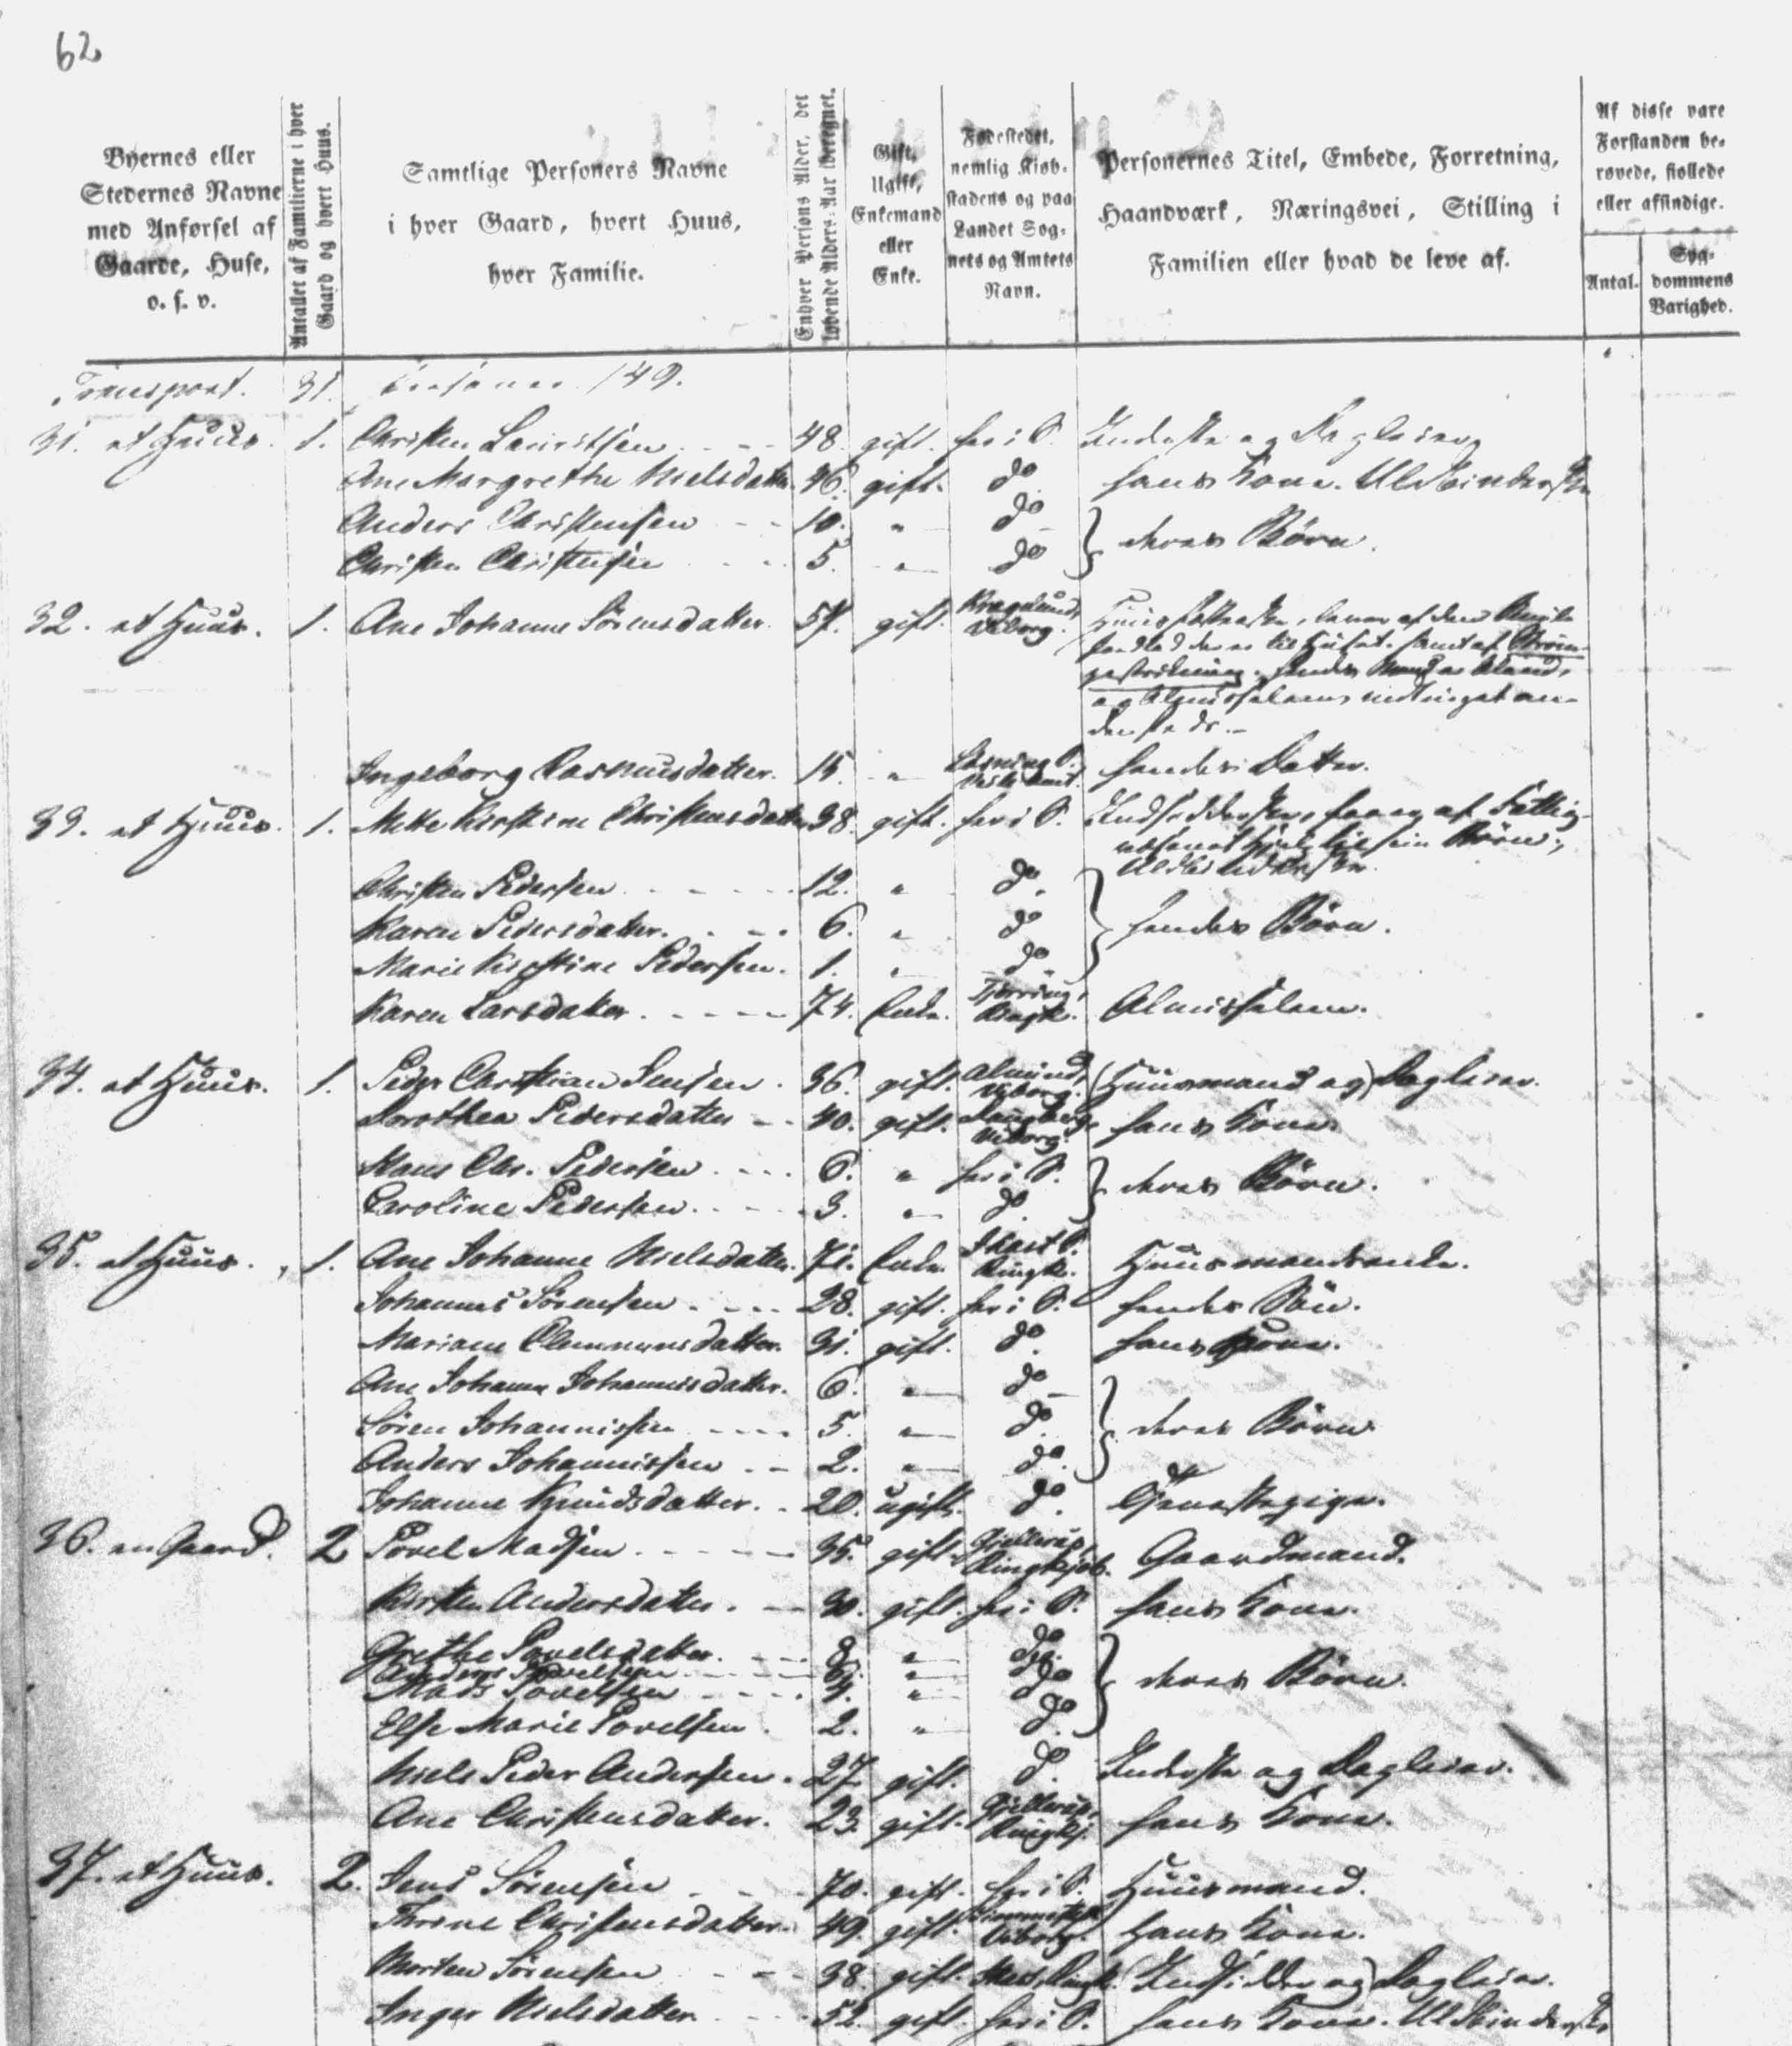 62
Byernes eller Stedernes Navne med Anførsel af Gaarde, Huse, o. s. v.
Antallet af Familierne i hver Gaard og hvert Huus.
Samtlige Personers Navne i hver Gaard, hvert Huus, hver Familie.
Enhver Persons Alder, det løbende Alders-Aar iberegnet.
Gift, Ugift, Enkemand eller Enke.
Fødestedet, nemlig Kjøbstadens og paa Landet Sognets og Amtets Navn.
Personernes Titel, Embede, Forretning, Haandværk, Næringsvei, Stilling i Familien eller hvad de leve af.
Af disse vare Forstanden berøvede, fiollede eller afsindige.
Antal.
Sygdommens Varighed.
Transport. 31. Personer 149.
31. et Huus. 1. Christen Lauritsen 48. gift. her i S. Inderste og Dagleier
Ane Margrethe Nielsdatter. 46. gift. do hans Kone. Uldbinderske
Anders Christensen 10. " do
Christen Christensen 5. " do } deres Börn.
32. et Huus. 1. Ane Johanne Sörensdatter. 57. gift. Kragelund, Viborg.
jordlod der er til Huset. samt af Ström-
pestrikning. hendes Mand er blind,
og Almisselem
Ingeborg Rasmusdatter. 15. " hendes Datter.
33. et Huus. 1. Mette Kirstine Christensdatter 38. gift. her i S.
til sin Börn,
Uldbinderske
Christen Pedersen 12. " do.
Karen Pedersdatter. 6. " do } hendes Börn.
Marie Kirstine Pedersen. 1. " do
Karen Larsdatter 74. Enke. Tjörring, Ringk. Almisselem.
34. et Huus. 1. Peder Christian Jensen. 36. gift. Almind, Viborg. (Huusmand og) Dagleier.
Dorothea Pedersdatter 40. gift. Daugberg, Viborg. hans Kone.
Chr. Pedersen 6. " her i S.
Caroline Pedersen 3. " do. } deres Börn.
35. et Huus. 1. Ane Johanne Nielsdatter. 71. Enke. Ikast S. Ringk. Huusmandsenke.
Johannes Sörensen 28. gift. her i S. hendes Sön.
Mariane Clemmensdatter. 31. gift. do. hans Kone.
Ane Johanne Johannesdatter. 6. " do
Sören Johannissen 5. " do. } deres Börn
Anders Johannissen 2. " do.
Johanne Knudsdatter. 20. ugift. do. Tjenestepige.
36. en Gaard. 2 Povel Madsen 35. gift. Gjellerup, Ringkjöb. Gaardmand.
Kirsten Andersdatter. 30. gift. her i S. hans Kone.
Grethe Povelsdatter. 8. " do.
Anders Povelsen 6. " do
Mads Povelsen 4. " do } deres Börn.
Else Marie Povelsen. 2. " do.
Niels Peder Andersen. 27 gift. do. Inderste og Dagleier.
Ane Christensdatter. 23. gift. Gjellerup, Ringkj. hans Kone.
37. et Huus. 2. Jens Sörensen 70. gift. her i S. Huusmand.
Thrine Christensdatter. 49. gift. Viborg. Hans Kone.
Morten Sörensen 38. gift. (Indsidder og) Dagleier.
Inger Nielsdatter 52. gift. her i S. hans Kone. Uldbinderske